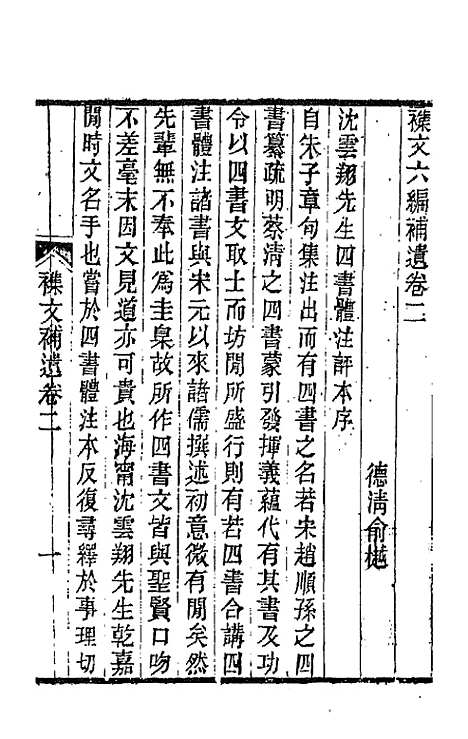 襍文六編補遺卷二
德淸俞樾
沈雲翔先生四書體注評本序
自朱子章句集注出而有四書之名若宋趙順孫之四
書纂疏明蔡淸之四書蒙引發揮義蘊代有其書及功
令以四書文取士而坊閒所盛行則有若四書合講四
書體注諸書與宋元以來諸儒撰述初意微有閒矣然
先輩無不奉此為圭臬故所作四書文皆與聖賢口吻
不差毫末因文見道亦可貴也海甯沈雲翔先生乾嘉
閒時文名手也嘗於四書體注本反復尋繹於事理切
襍文補遺卷二
一